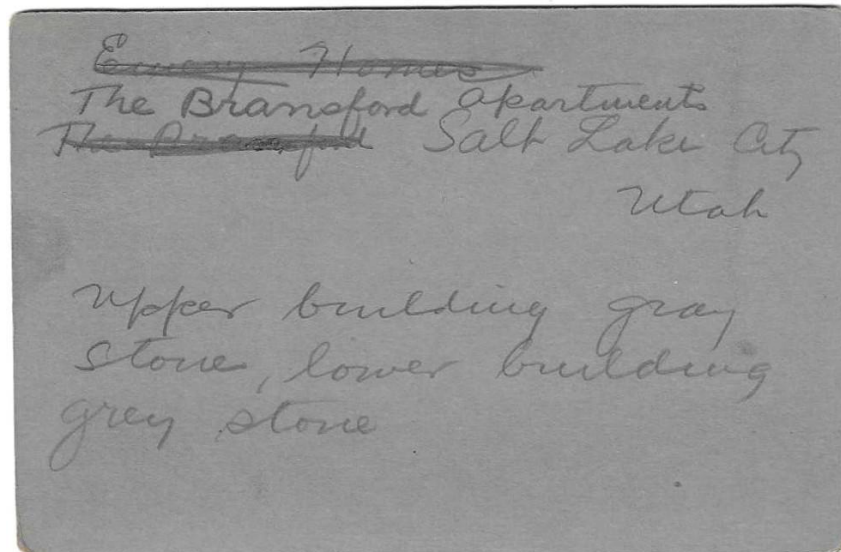 Emery Homes
The Bransford apartments
The Bransford Salt Lake City
Utah
Upper building gray
stone, lower building
grey stone